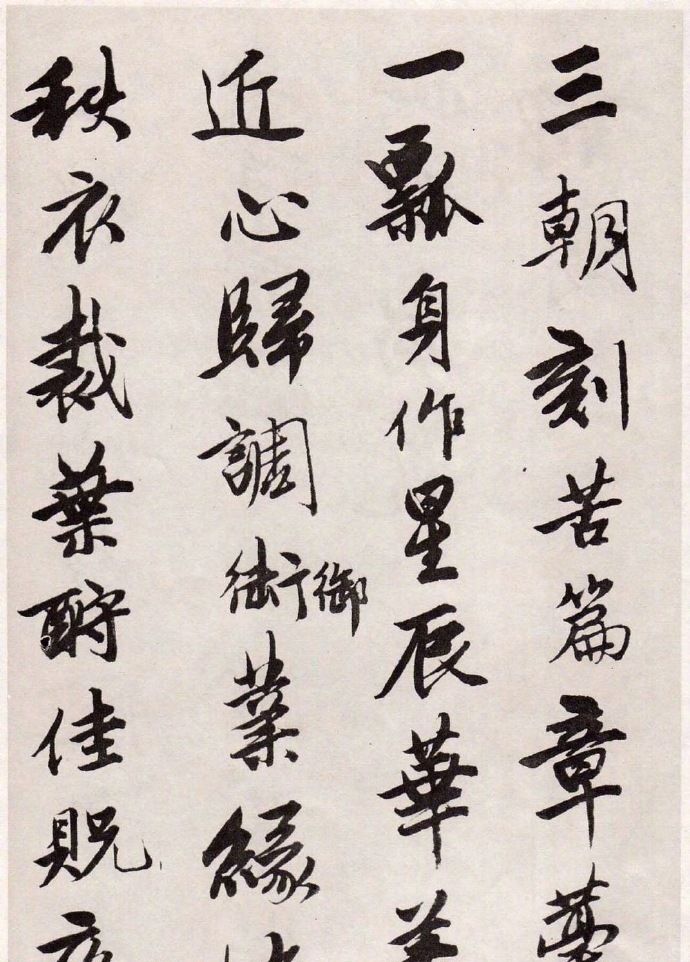 三朝刻苦篇章
一瓢身作星辰華
近心歸調御業緣
秋衣裁葉酹佳貺